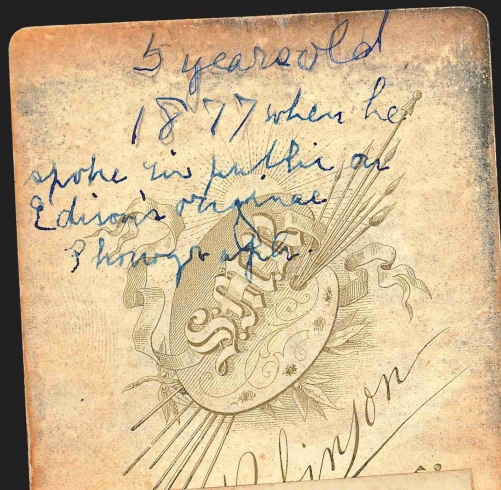 5 years old
1877 when he
spoke in public on
Edison's original
Phonograph.
S.M.R.
Robinson